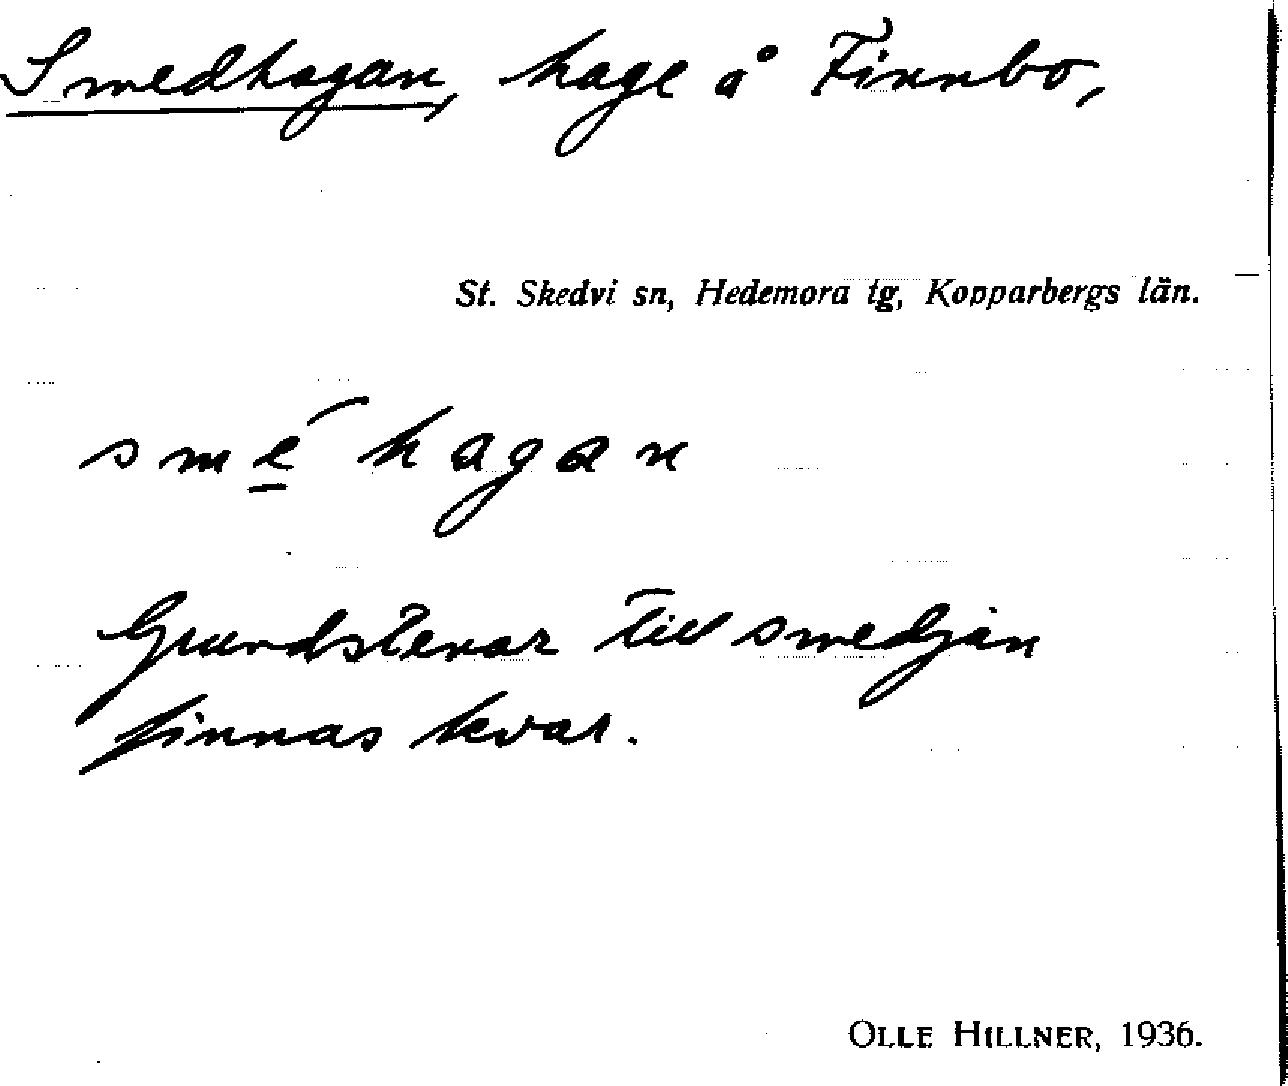 Smedhagan, hage å Finnbo,
St. Skedvi sn, Hedemora tg, Kopparbergs län.
smé̱hagan
Grundstenar till smedjan
finnas kvar.
OLLE HILLNER, 1936.